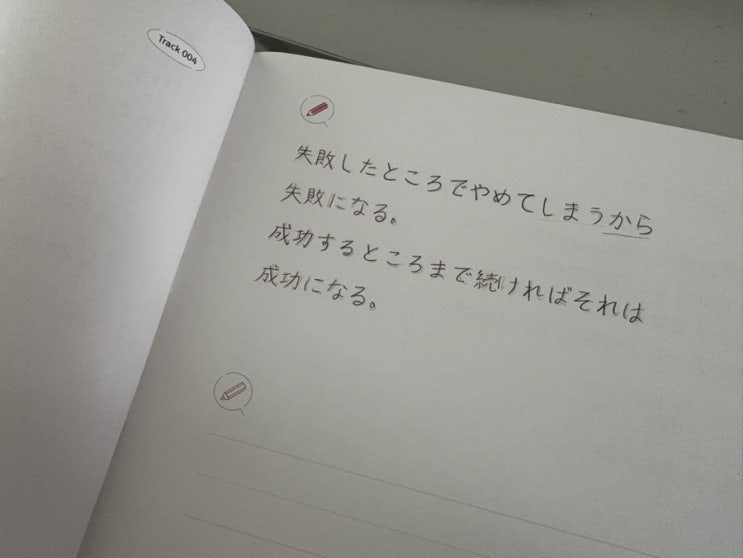 Track 004
失敗したところでやめてしまうから
失敗になる。
成功するところまで続ければそれは
成功になる。